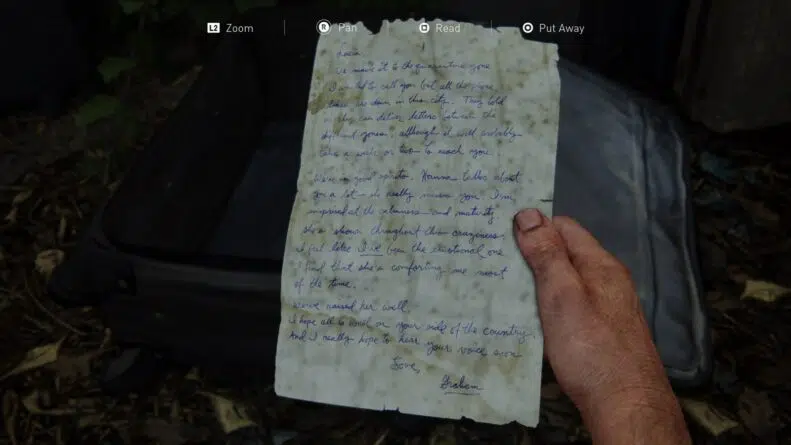 L2 Zoom R Pan Read Put Away
Lucia,
We made it to the quarantine zone.
I wanted to call you but all the phone
lines are down in this city. They told
us they can deliver letters between the
different zones, although it will probably
take a week or two to reach you.
We're in good spirits. Hanna talks about
you a lot - she really misses you. I'm
impressed at the calmness and maturity
she's shown throughout this craziness.
I feel like I've been the emotional one
find that she's comforting me most
of the time.
We've raised her well.
I hope all is well on your side of the country.
And I really hope to hear your voice soon
Love,
Graham